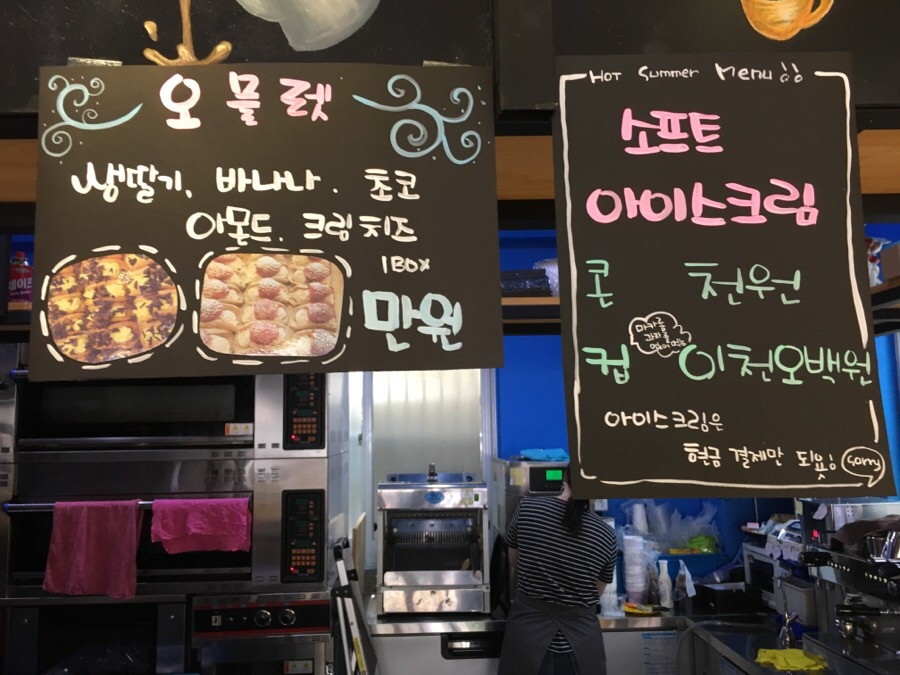 오믈렛
생딸기, 바나나. 초코
아몬드. 크림치즈
1BOX
만원
HOT Summer Menu
소프트
아이스크림
콘 천원
컵 이천오백원
아이스크림은
현금 결제만 되요!
Sorry